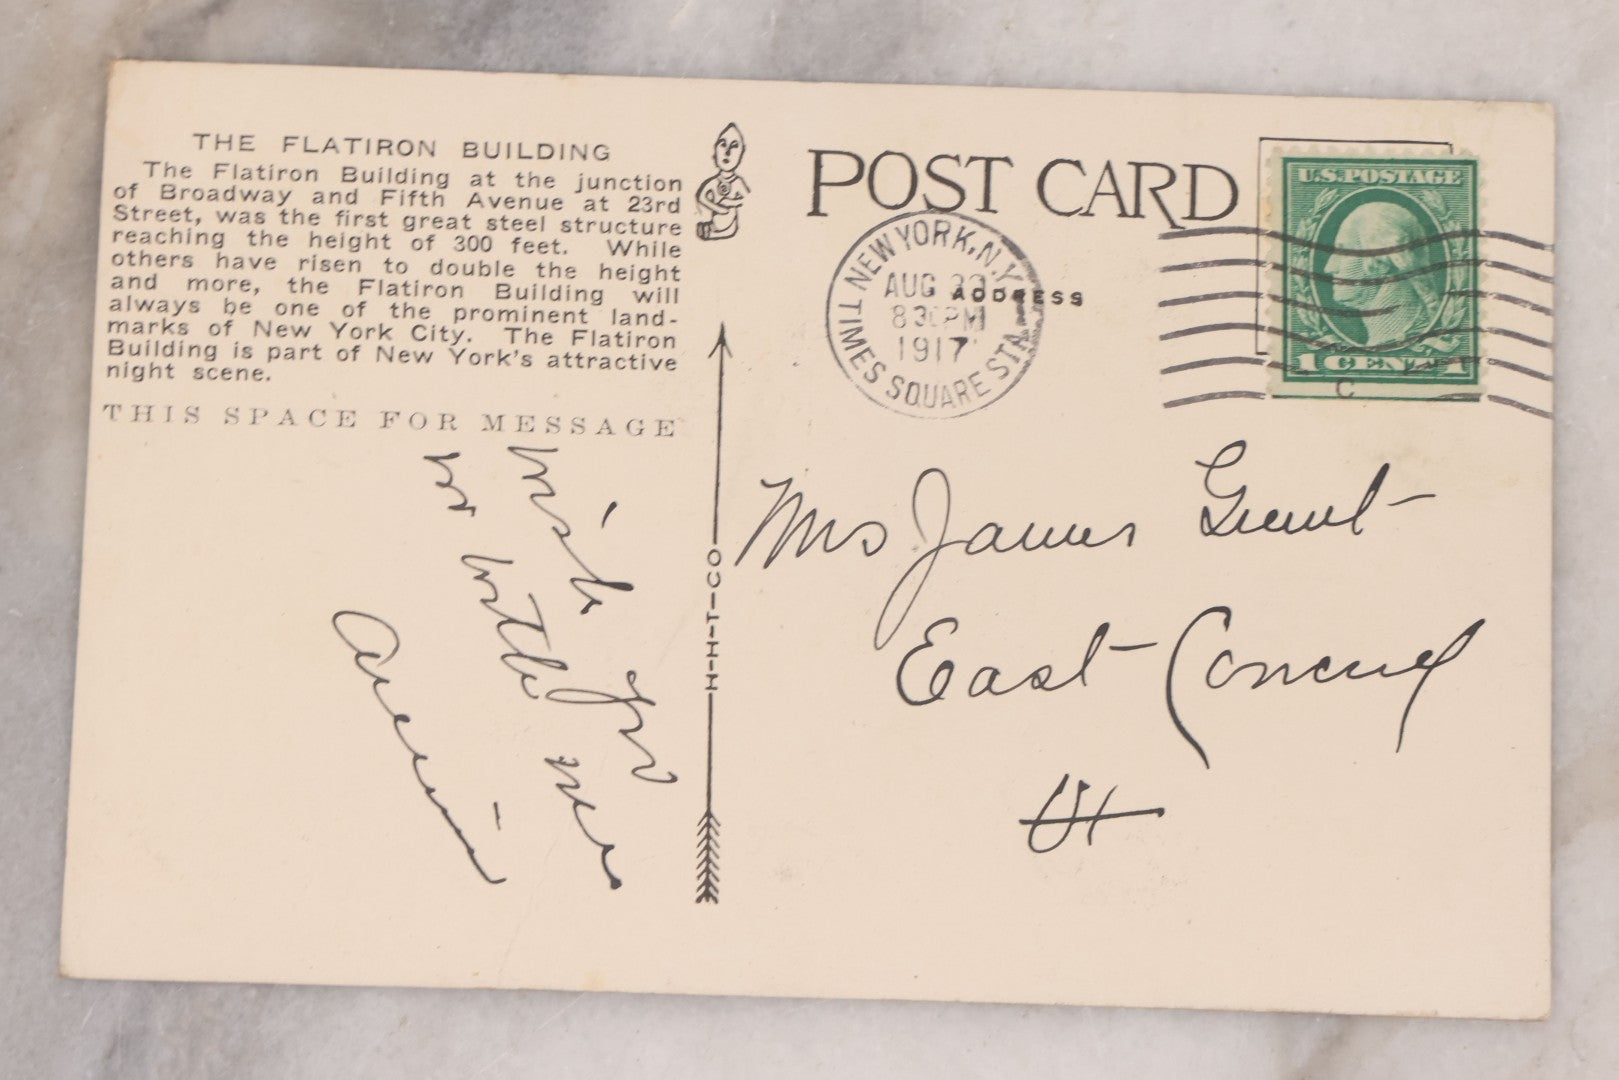 THE FLATIRON BUILDING
The Flatiron Building at the junction
of Broadway and Fifth Avenue at 23rd
Street, was the first great steel structure
reaching the height of 300 feet. While
others have risen to double the height
and more, the Flatiron Building will
always be one of the prominent land-
marks of New York City. The Flatiron
Building is part of New York's attractive
night scene.
THIS SPACE FOR MESSAGE
wish you
were
H-H-T-CO
POST CARD
ADDRESS
NEW YORK, N.Y.
AUG
830PM
1917
TIMES SQUARE STA.
U.S. POSTAGE
1 CENT 1
C
Mrs James Grant
East Concord
Vt